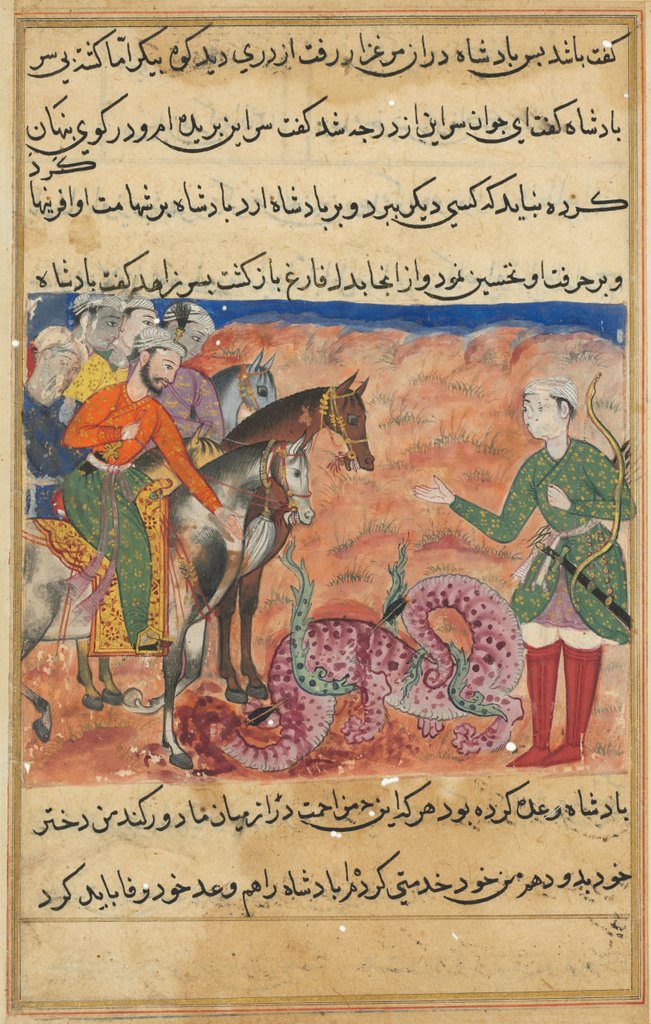 گفت باشد پس بادشاه در ان مرغزار رفت ازدری دید کوه پیکر اما کشته بی سر
بادشاه گفت ای جوان سر این ازدر چه شد گفت سر این بریده ام و در کوی نهان
کرد
کرده نباید که کسی دیکر ببرد و بر بادشاه ارد بادشاه بر شهامت او افرینها
و بر حرفت او تحسین نمود و از انجا بدل فارغ باز کشت پسر زاهد کفت بادشاه
بادشاه وعده کرده بود هر که این زحمت از میان ما دور کند من دختر
خود بدو دهم من خود خدمتی کرده ام بادشاه را هم وعد خود وفا باید کرد